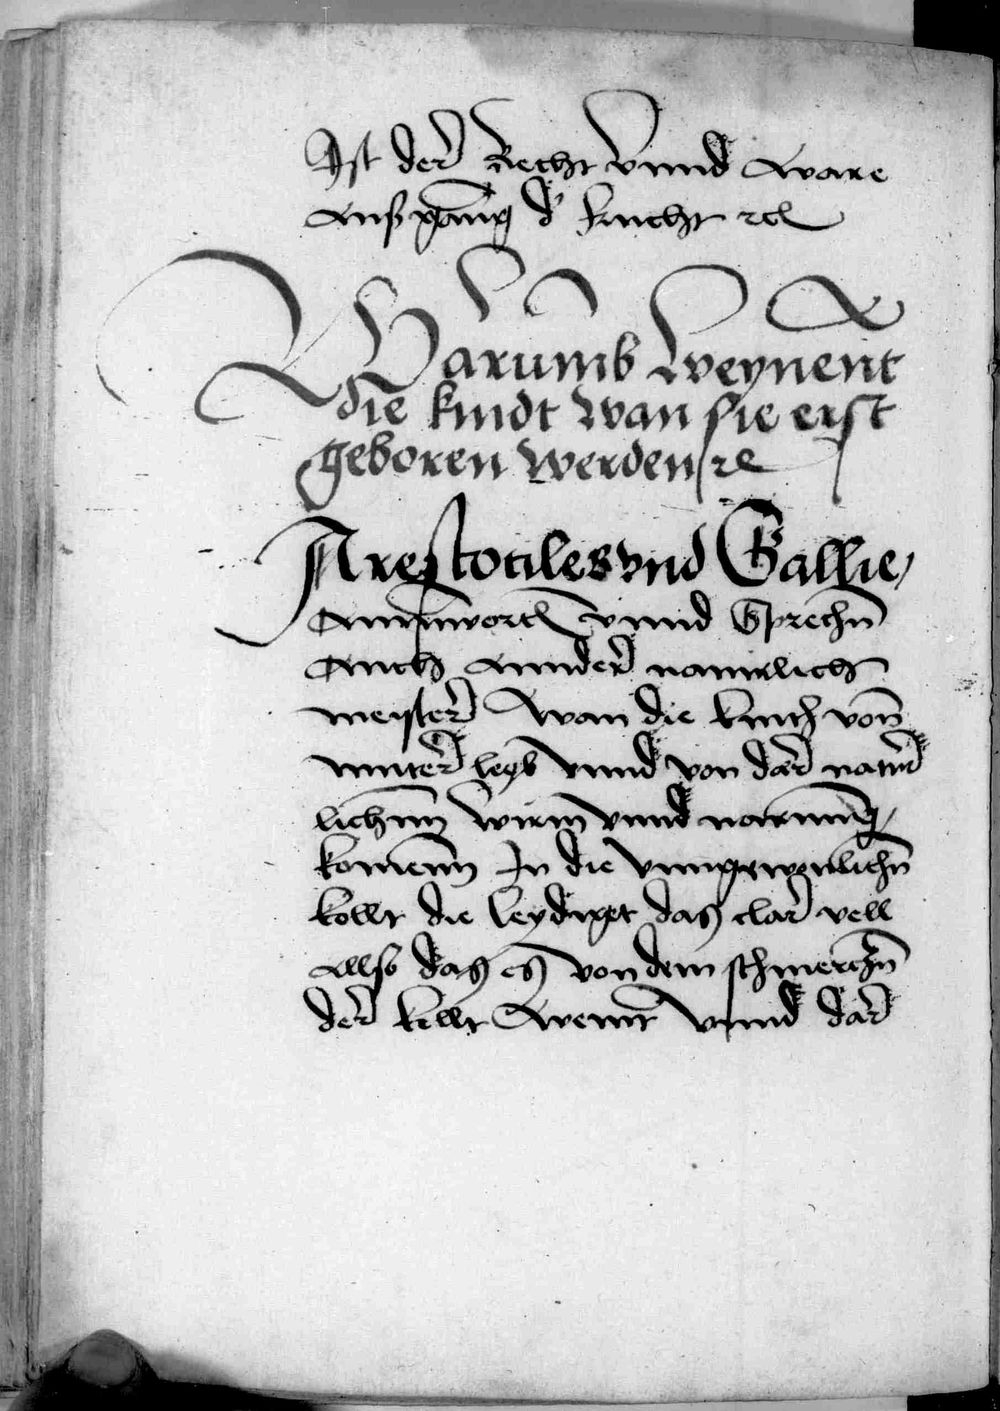 Ist der Recht vnnd ware
außgang d' frucht ꝛc
Warumb Weynent
die kindt wan sie erst
geboren werden ꝛc
Arestotiles vnd Gallie,
Anntwort vnnd Sprechn̄
Auch annder naturlich
meyster wan die kind von
mutter leyb vnnd von dar natur
lichenn wirm vnnd narung,
komenn In die vnngewonlichn̄
kellt die leydiget das clar vell
allso das es von dem schmerczn̄
der kellt Weint vnnd dar